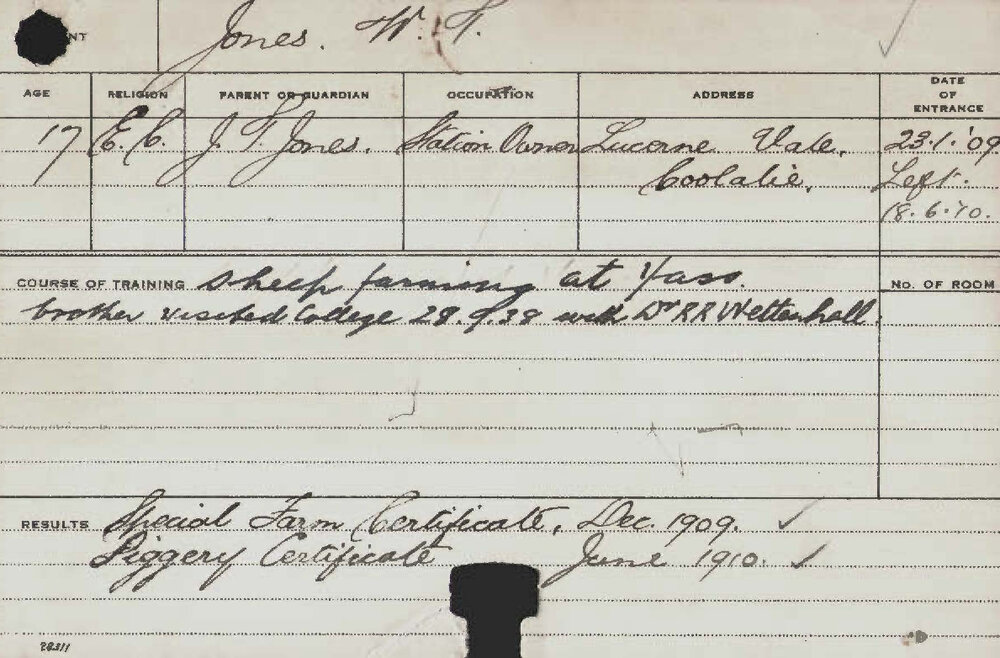 NT Jones. W. F.
AGE RELIGION PARENT OR GUARDIAN OCCUPATION ADDRESS DATE OF ENTRANCE
17 E. C. J. F. Jones. Station Owner Lucerne Vale, 23.1.'09
Coolalie, Left.
18.6.10.
COURSE OF TRAINING Sheep farming at Yass. No. OF ROOM
brother visited College 28.9.38 with Dr R R Wettenhall.
RESULTS Special Farm Certificate, Dec. 1909. ✓
Piggery Certificate June 1910. ✓
28311